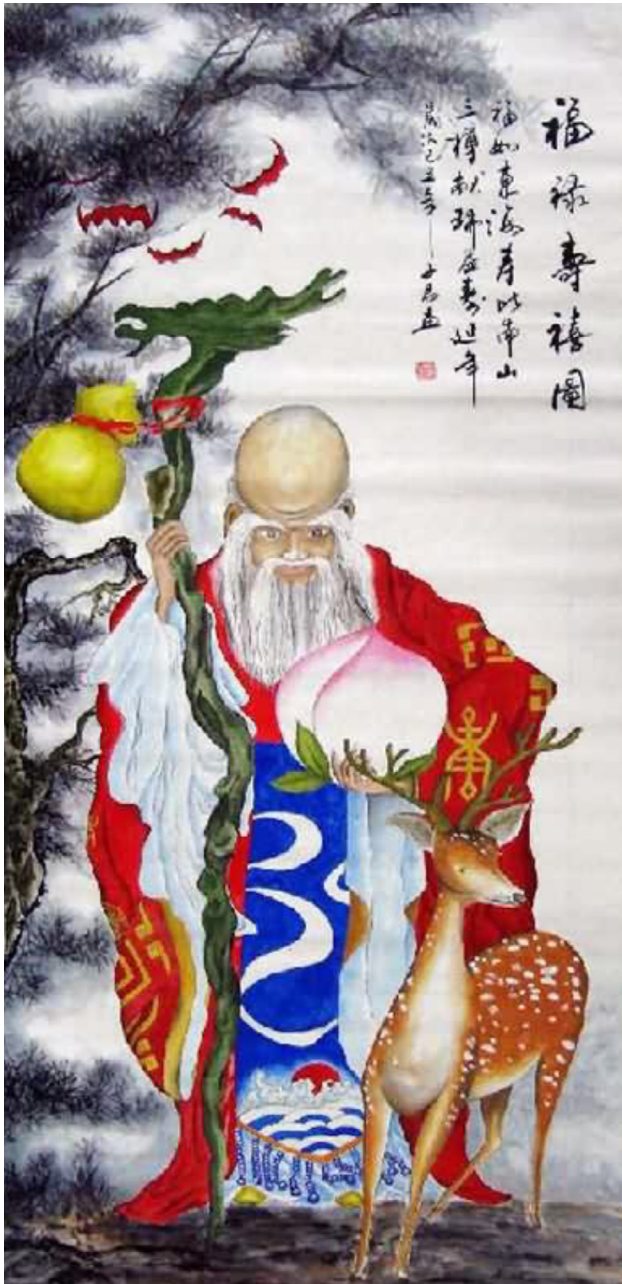 福禄寿禧圖
福如東海寿比南山
三樽献瑞益寿延年
歲次己丑年